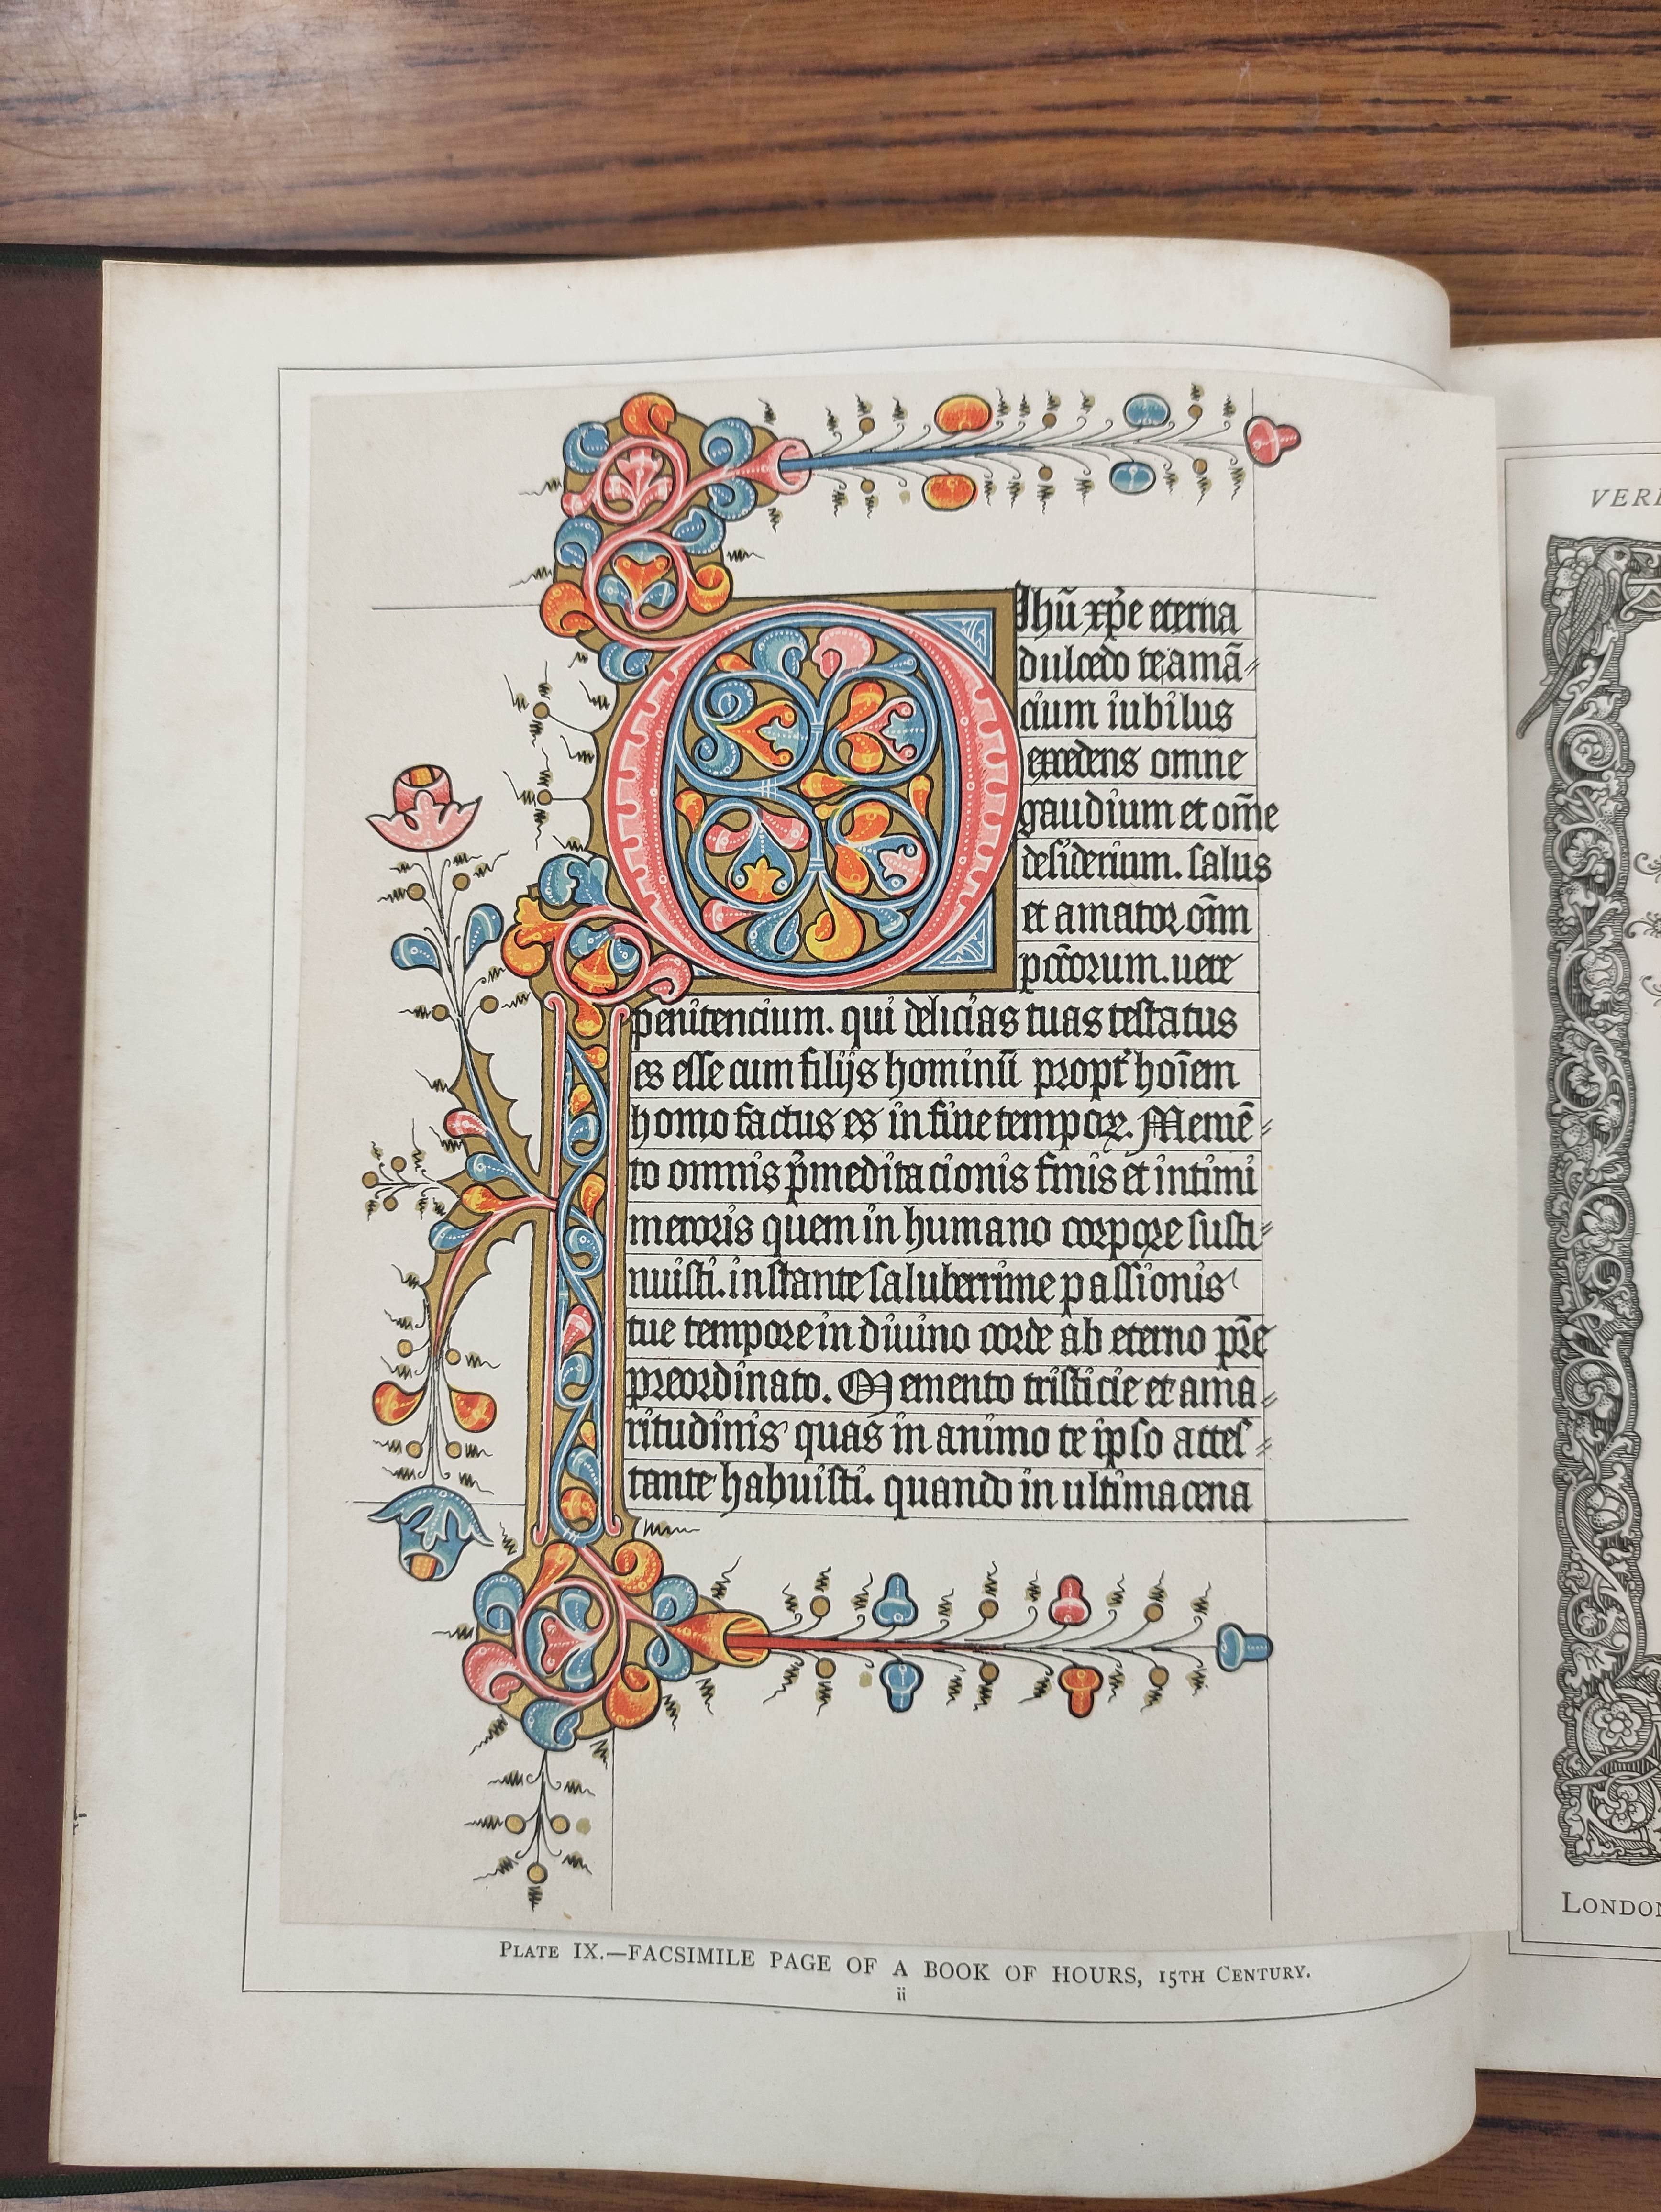 O Jhū xp̄e eterna
dulcedo te amā⸗
cium iubilus
excedens omne
gaudium et om̄e
desiderium. salus
et amator om̄
pctōrum. uere
penitencium. qui delicias tuas testatus
es esse cum filijs hominū propt' hoīem
homo factus es in fine tempoꝝ. Memē⸗
to omnis p̄meditacionis et intimi
meroris quem in humano corpore susti⸗
nuisti. instante saluberrime passionis
tue tempore in diuino corde ab eterno
preordinato. Memento tristicie et ama⸗
ritudinis quas in animo te ipso attes⸗
tante habuisti. quando in ultima cena
PLATE IX.—FACSIMILE PAGE OF A BOOK OF HOURS, 15TH CENTURY.
ii
LONDON